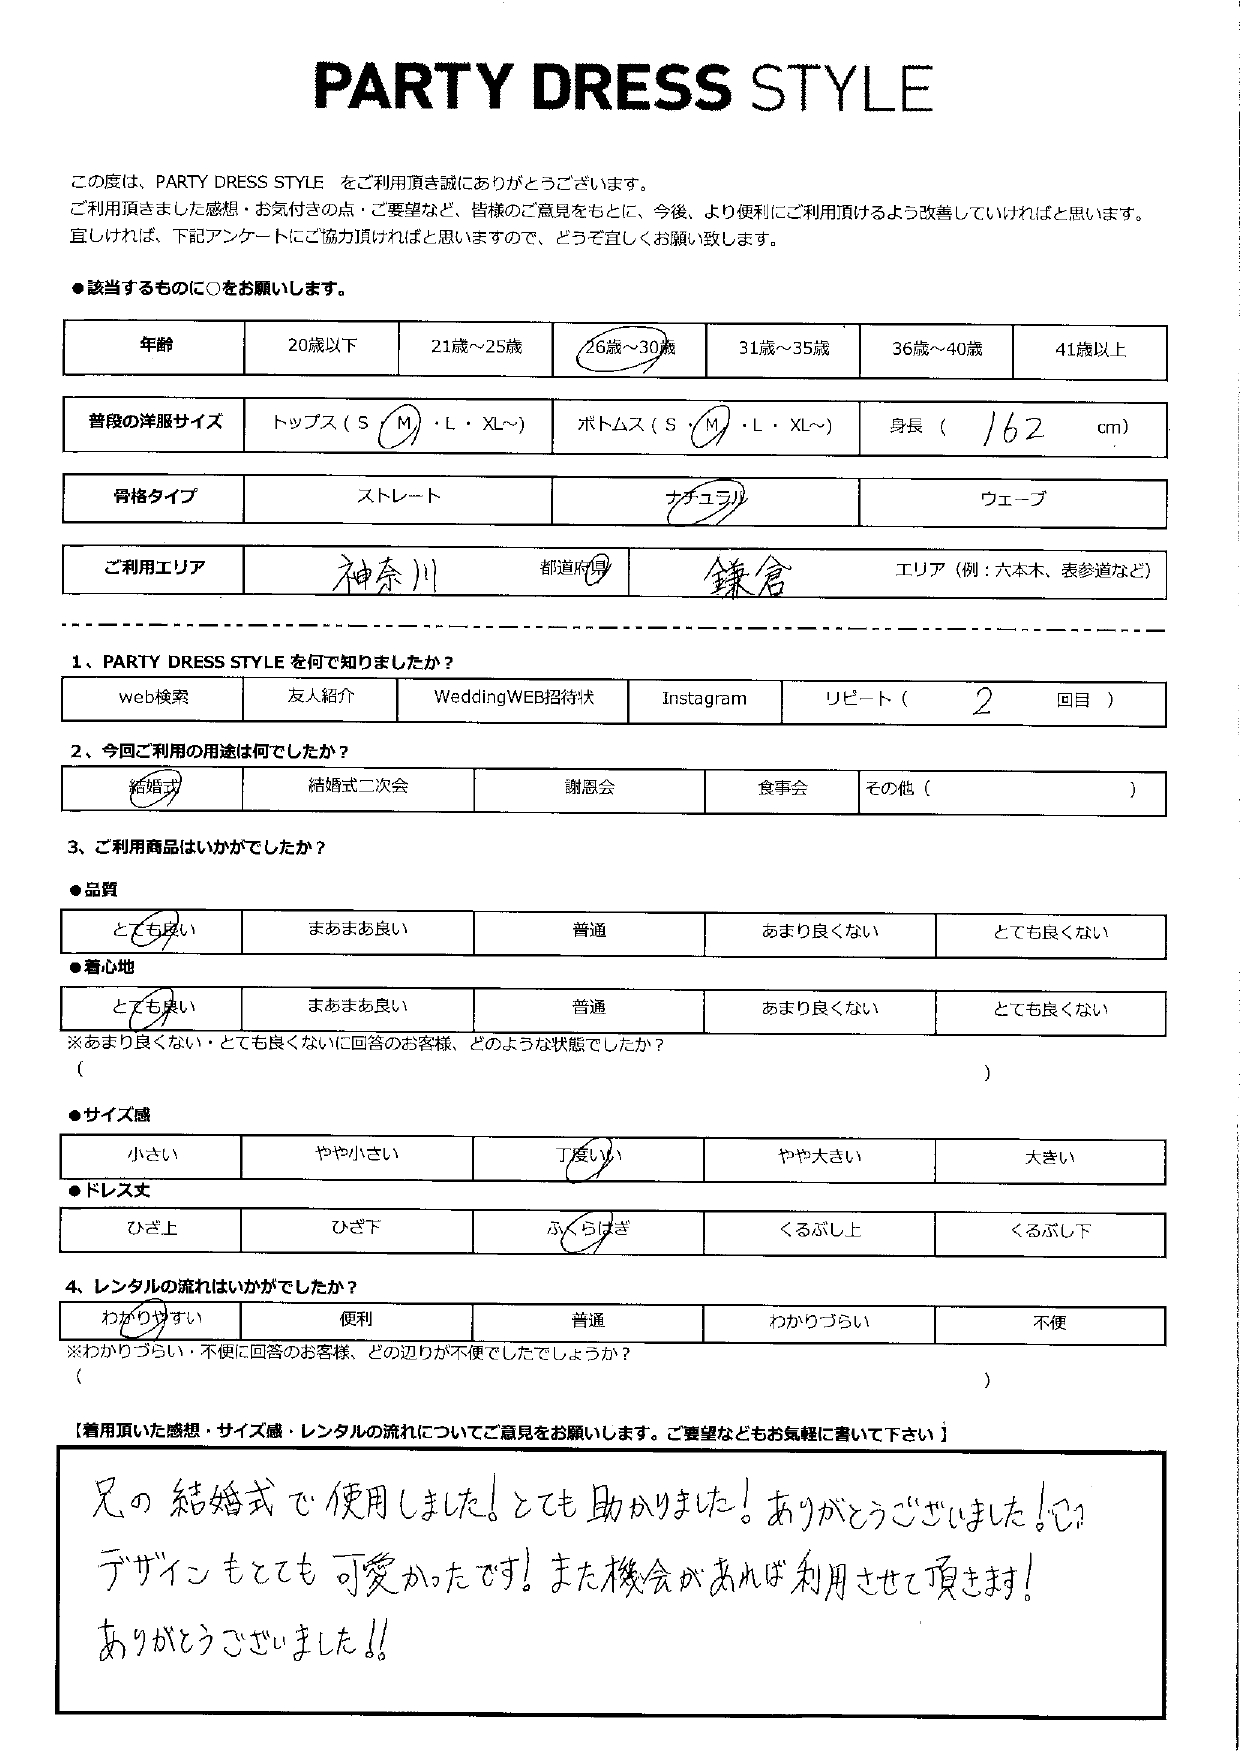 PARTY DRESS STYLE
この度は、PARTY DRESS STYLE をご利用頂き誠にありがとうございます。
ご利用頂きました感想・お気付きの点・ご要望など、皆様のご意見をもとに、今後、より便利にご利用頂けるよう改善していければと思います。
宜しければ、下記アンケートにご協力頂ければと思いますので、どうぞ宜しくお願い致します。
●該当するものに○をお願いします。
年齢 20歳以下 21歳～25歳 26歳～30歳 31歳～35歳 36歳～40歳 41歳以上
普段の洋服サイズ トップス ( S ・ M ・L ・ XL～) ボトムス ( S ・ M ・L ・ XL～) 身長 ( 162 cm)
骨格タイプ ストレート ナチュラル ウェーブ
ご利用エリア 神奈川 都道府県 鎌倉 エリア（例：六本木、表参道など）
1、PARTY DRESS STYLE を何で知りましたか？
web検索 友人紹介 WeddingWEB招待状 Instagram リピート ( 2 回目 )
2、今回ご利用の用途は何でしたか？
結婚式 結婚式二次会 謝恩会 食事会 その他 ( )
3、ご利用商品はいかがでしたか？
●品質
とても良い まあまあ良い 普通 あまり良くない とても良くない
●着心地
とても良い まあまあ良い 普通 あまり良くない とても良くない
※あまり良くない・とても良くないに回答のお客様、どのような状態でしたか？
( )
●サイズ感
小さい やや小さい 丁度いい やや大きい 大きい
●ドレス丈
ひざ上 ひざ下 ふくらはぎ くるぶし上 くるぶし下
4、レンタルの流れはいかがでしたか？
わかりやすい 便利 普通 わかりづらい 不便
※わかりづらい・不便に回答のお客様、どの辺りが不便でしたでしょうか？
( )
【着用頂いた感想・サイズ感・レンタルの流れについてご意見をお願いします。ご要望などもお気軽に書いて下さい】
兄の結婚式で使用しました！とても助かりました！ありがとうございました！
デザインもとても可愛かったです！また機会があれば利用させて頂きます！
ありがとうございました！！